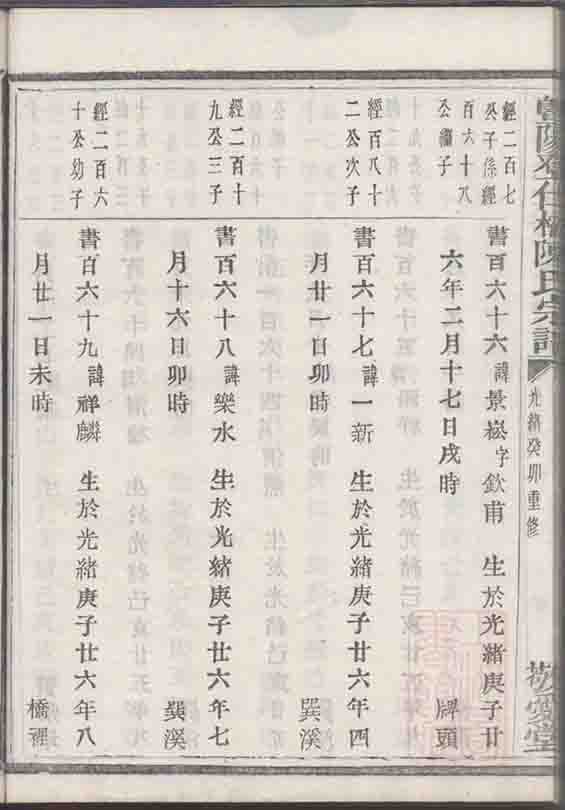 陽
橋陳氏宗譜
光緒癸卯重修
敬愛堂
經二百七
子係經
百六十八
公繼子
書百六十六 諱景崧字欽甫 生於光緒庚子廿
六年二月十七日戌時 牌頭
經百八十
二公次子
書百六十七 諱一新 生於光緒庚子廿六年四
月廿一日卯時 巽溪
經二百十
九公三子
書百六十八 諱樂水 生於光緒庚子廿六年七
月十六日卯時 巽溪
經二百六
十公幼子
書百六十九 諱祥麟 生於光緒庚子廿六年八
月廿一日未時 橋裡